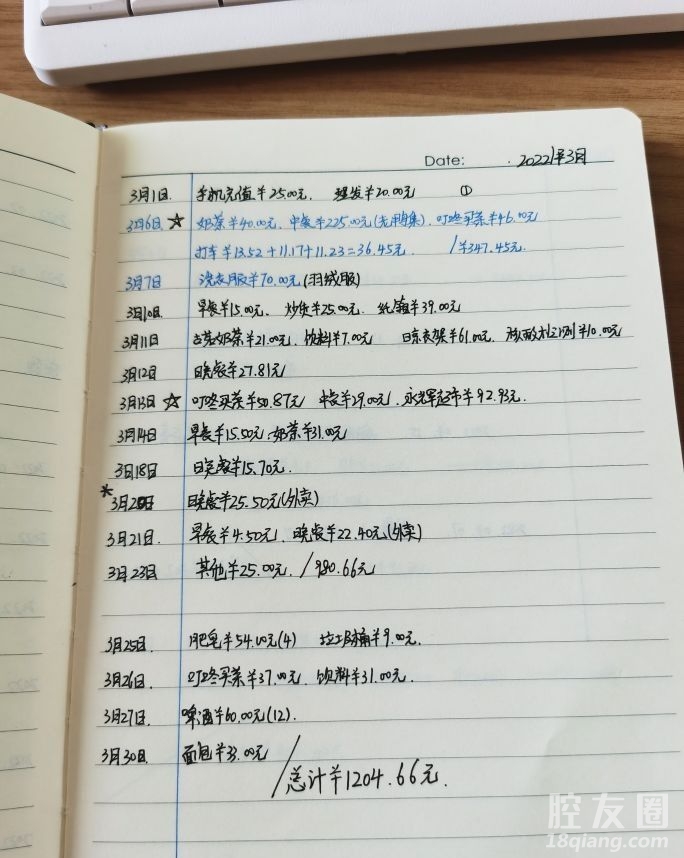 Date: 2022年3月
3月1日. 手机充值¥25.00元. 理发¥20.00元 ①
3月6日. ☆ 奶茶¥40.00元. 中餐¥225.00元(先明集). 叮咚买菜¥46.00元
打车¥13.52+11.17+11.23=36.45元. /¥347.45元.
3月7日 洗衣服¥70.00元(羽绒服)
3月10日 早餐¥15.00元. 炒货¥25.00元. 纸箱¥39.00元
3月11日 古茗奶茶¥21.00元. 饮料¥7.00元 日晾衣架¥61.00元. ¥10.00元
3月12日 晚餐¥27.81元
3月13日 ☆ 叮咚买菜¥50.87元 中餐¥29.00元. 永辉超市¥92.93元.
3月14日 早餐¥15.50元.奶茶¥31.00元
3月18日 晚餐¥15.70元.
* 3月20日 晚餐¥25.50元(外卖)
3月21日. 早餐¥4.50元. 晚餐¥22.40元(外卖)
3月23日 其他¥25.00元. /980.66元
3月25日. 肥皂¥54.00元(4) 垃圾桶¥9.00元.
3月26日. 叮咚买菜¥37.00元. 饮料¥31.00元.
3月27日 啤酒¥60.00元(12).
3月30日. 面包¥33.00元
/总计¥1204.66元.
腔友圈
18qiang.com